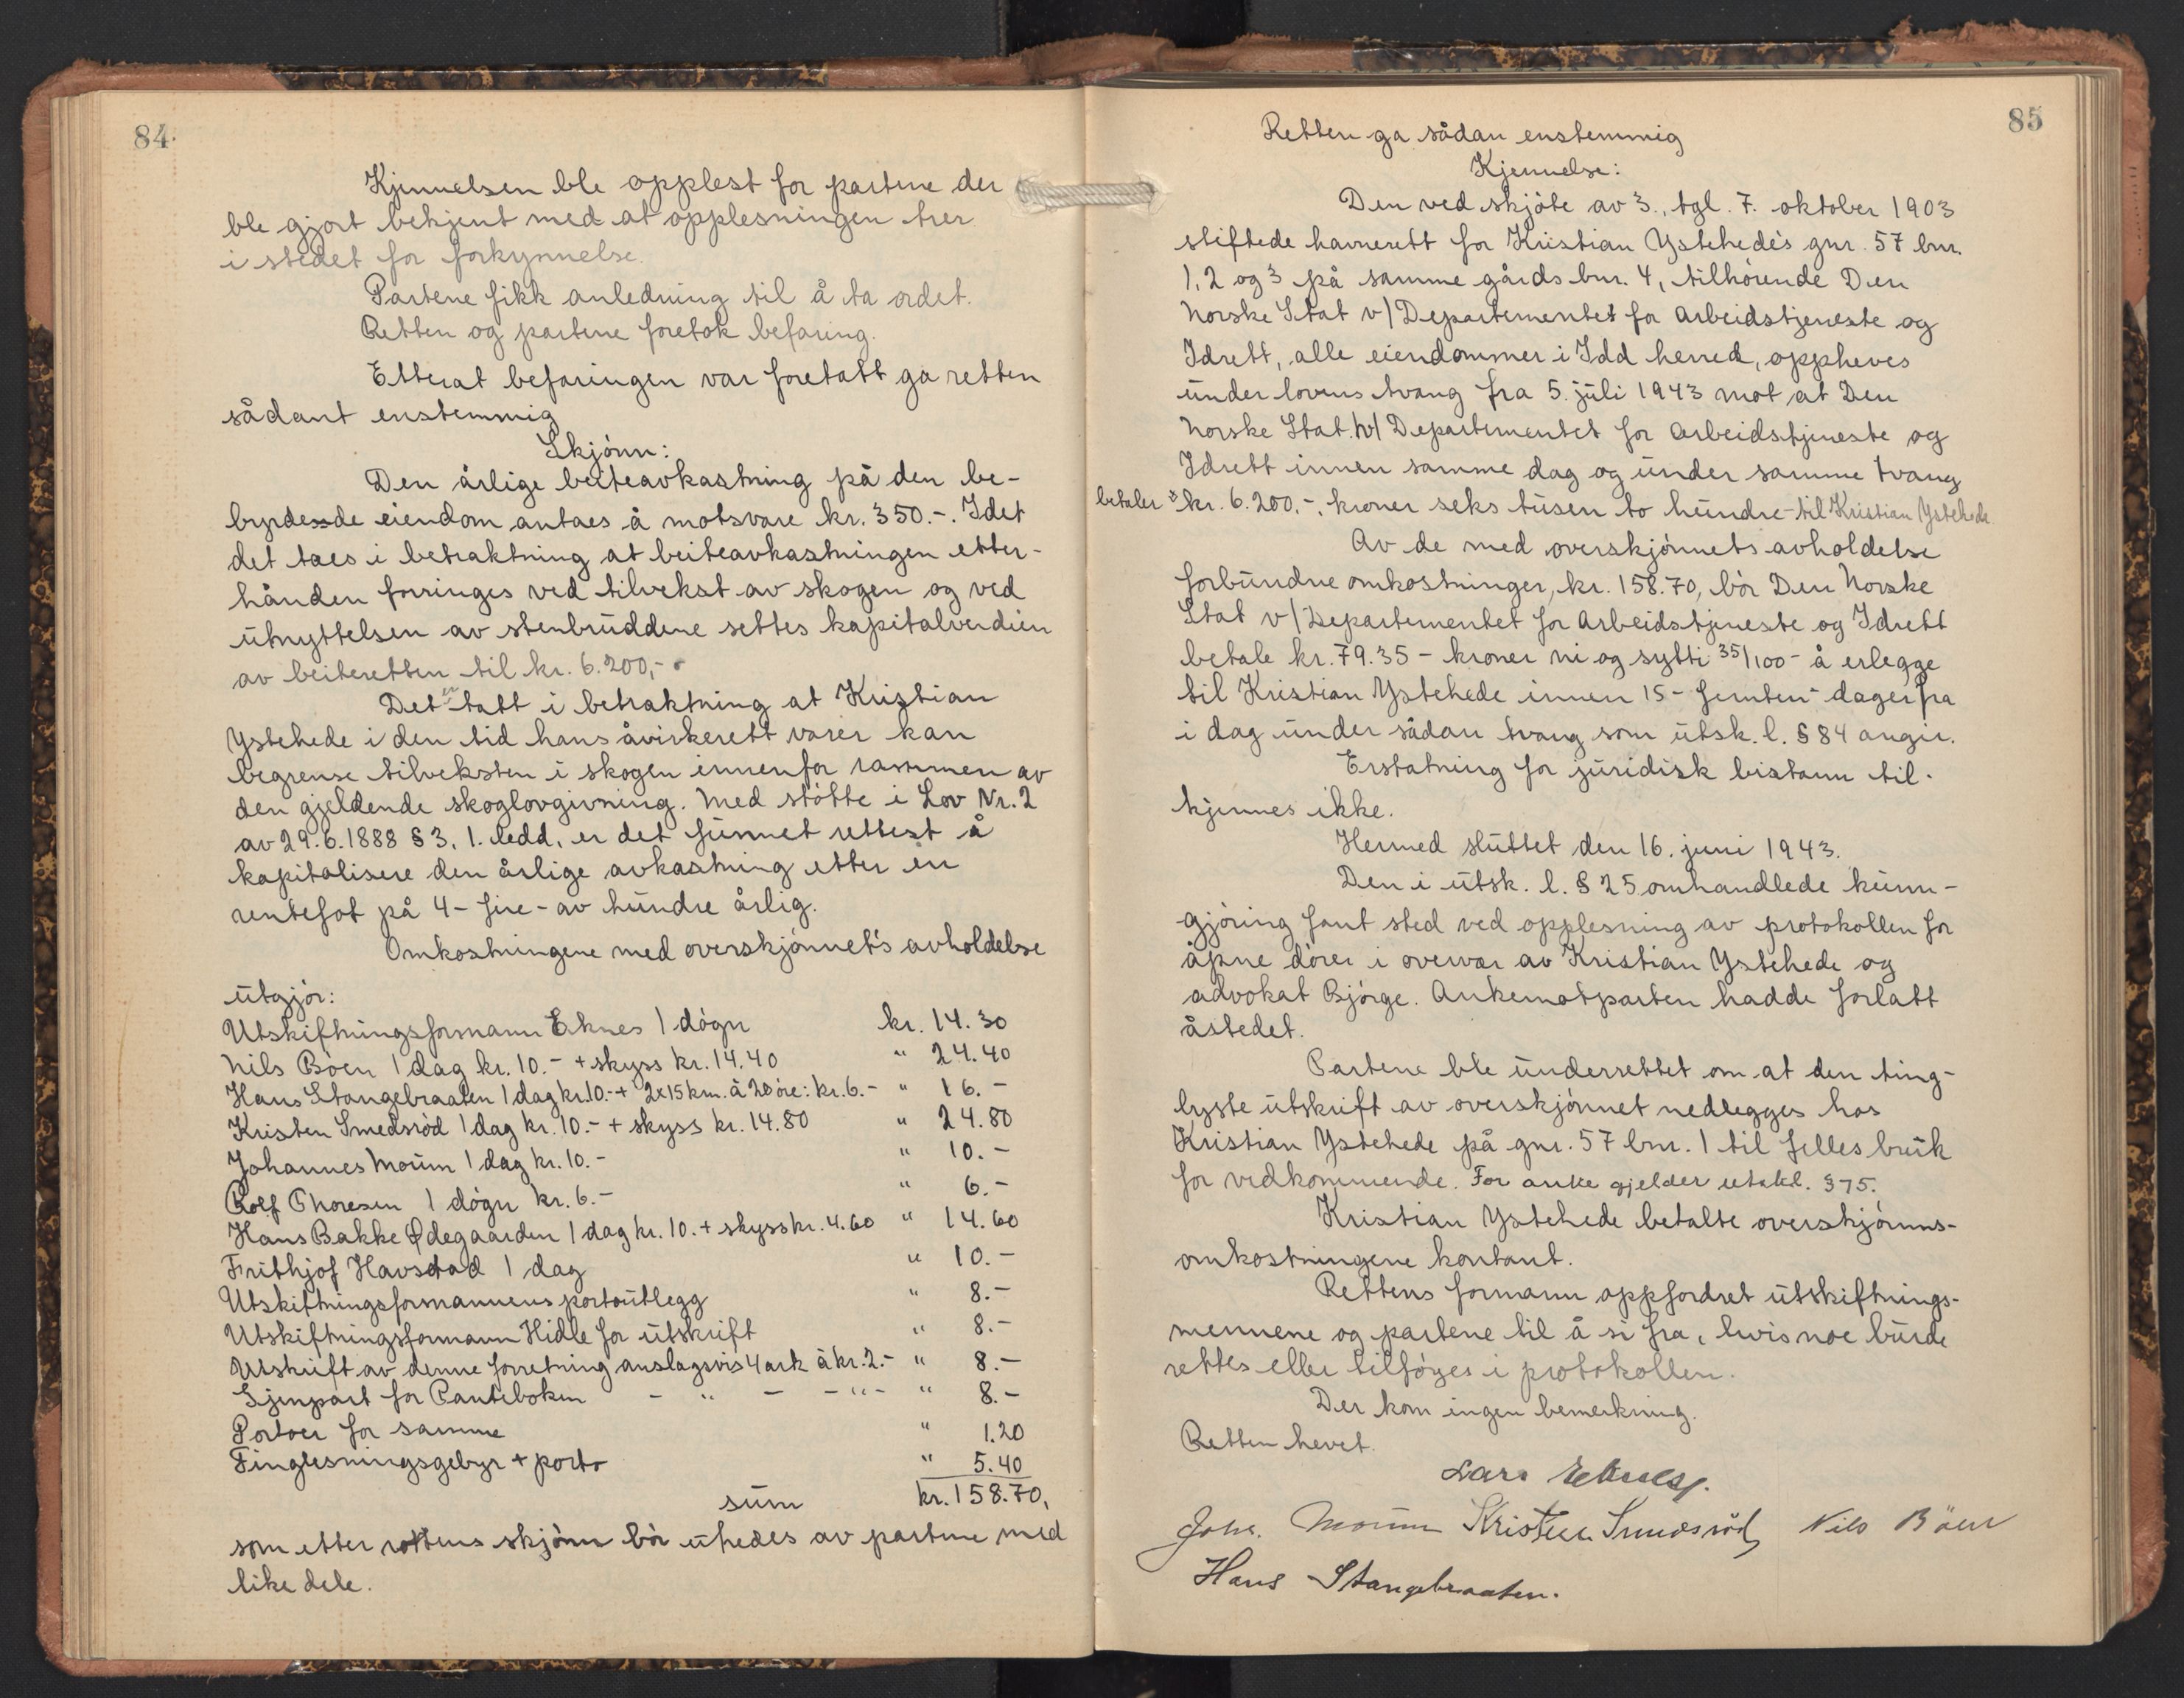 84.
Kjennelsen ble opplest for partene der
ble gjort bekjent med at opplesningen trer
i stedet for forkynnelse.
Partene fikk anledning til å ta ordet.
Retten og partene foretok befaring.
Etterat befaringen var foretatt ga retten
sådant enstemmig
Skjönn:
Den årlige beiteavkastning på den be-
byrdende eiendom antaes å motsvare kr. 350.-. Idet
det taes i betraktning at beiteavkastningen etter-
hånden forringes ved tilvekst av skogen og ved
utnyttelsen av stenbruddene settes kapitalverdien
av beiteretten til kr. 6.200,-
Det er tatt i betraktning at Kristian
Ystehede i den tid hans åvirkerett varer kan
begrense tilveksten i skogen innenfor rammen av
den gjeldende skoglovgivning. Med stötte i Lov Nr. 2
av 29.6.1888 § 3, 1. ledd, er det funnet rettest å
kapitalisere den årlige avkastning etter en
rentefot på 4 - fire - av hundre årlig.
Omkostningene med overskjönnets avholdelse
utgjör:
Utskiftningsformann Eknes 1 dögn kr. 14.30
Nils Böen 1 dag kr. 10.- + skyss kr. 14.40 " 24.40
Hans Stangebraaten 1 dag kr. 10.- + 2x15 km. à 20 öre: kr. 6.- " 16.-
Kristen Smedsröd 1 dag kr. 10.- + skyss kr. 14.80 " 24.80
Johannes Moum 1 dag kr. 10.- " 10.-
Rolf Thoresen 1 dögn kr. 6.- " 6.-
Hans Bakke Ødegaarden 1 dag kr. 10. + skyss kr. 4.60 " 14.60
Frithjof Havstad 1 dag " 10.-
Utskiftningsformannens portoutlegg " 8.-
Utskiftningsformann Hidle for utskrift " 8.-
Utskrift av denne forretning anslagsvis 4 ark à kr. 2.- " 8.-
Gjenpart for Panteboken - " - - " - " 8.-
Portoer for samme " 1.20
Tinglesningsgebyr + porto " 5.40
sum kr. 158.70,
som etter rettens skjönn bör utredes av partene med
like dele.
85
Retten ga sådan enstemmig
Kjennelse:
Den ved skjöte av 3., tgl. 7. oktober 1903
stiftede havnerett for Kristian Ystehede's gnr. 57 bnr.
1, 2 og 3 på samme gårds bnr. 4, tilhörende Den
Norske Stat v/Departementet for Arbeidstjeneste og
Idrett, alle eiendommer i Idd herred, oppheves
under lovens tvang fra 5. juli 1943 mot at Den
Norske Stat v/Departementet for Arbeidstjeneste og
Idrett innen samme dag og under samme tvang
betaler kr. 6.200.-, kroner seks tusen to hundre - til Kristian Ystehede.
Av de med overskjönnets avholdelse
forbundne omkostninger, kr. 158.70, bör Den Norske
Stat v/Departementet for Arbeidstjeneste og Idrett
betale kr. 79.35 - kroner ni og sytti 35/100 - å erlegge
til Kristian Ystehede innen 15 - femten - dager fra
i dag under sådan tvang som utsk. l. § 84 angir.
Erstatning for juridisk bistann til-
kjennes ikke.
Hermed sluttet den 16. juni 1943.
Den i utsk. l. § 25 omhandlede kunn-
gjöring fant sted ved opplesning av protokollen for
åpne dörer i overvær av Kristian Ystehede og
advokat Bjórge. Ankemotparten hadde forlatt
åstedet.
Partene ble underrettet om at den ting-
lyste utskrift av overskjönnet nedlegges hos
Kristian Ystehede på gnr. 57 bnr. 1 til felles bruk
for vedkommende. For anke gjelder utskl. § 75.
Kristian Ystehede betalte overskjönns-
omkostningene kontant.
Rettens formann oppfordret utskiftnings-
mennene og partene til å si fra, hvis noe burde
rettes eller tilföyes i protokollen.
Der kom ingen bemerkning.
Retten hevet.
Lars Eknes
Johs. Moum Kristen Smedsröd Nils Böen
Hans Stangebraaten.